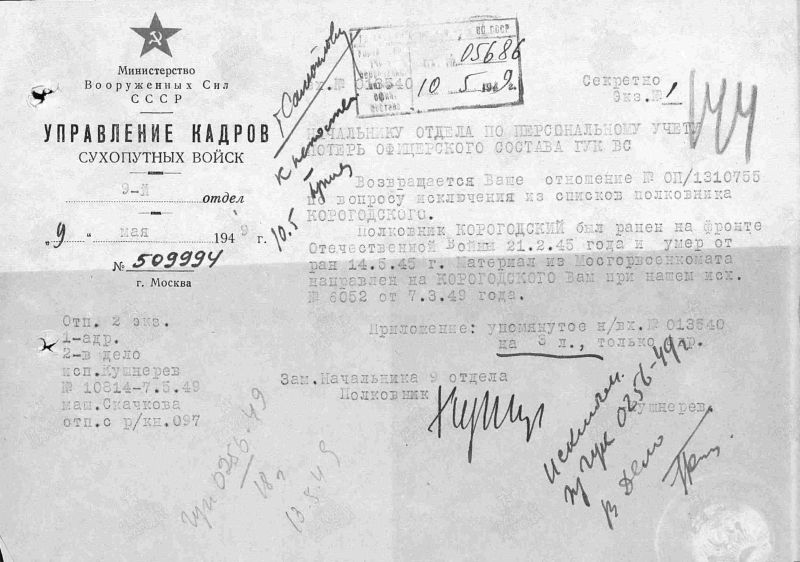 Министерство
Вооруженных Сил
СССР
УПРАВЛЕНИЕ КАДРОВ
СУХОПУТНЫХ ВОЙСК
9-й отдел
„9" мая 1949 г.
№ 509994
г. Москва
Отп. 2 экз.
1-адр.
2-в дело
исп.Кушнерев
№ 10814-7.5.49
маш.Скачкова
отп.с р/кн.097
ВС СССР
05686
10 5 1949г.
вх.№ 013540
Секретно
Экз.№ 1
144
НАЧАЛЬНИКУ ОТДЕЛА ПО ПЕРСОНАЛЬНОМУ УЧЕТУ
ПОТЕРЬ ОФИЦЕРСКОГО СОСТАВА ГУК ВС
Возвращается Ваше отношение № ОП/1310755
по вопросу исключения из списков полковника
КОРОГОДСКОГО.
Полковник КОРОГОДСКИЙ был ранен на фронте
Отечественной Войны 21.2.45 года и умер от
ран 14.5.45 г. Материал из Мосгорвоенкомата
направлен на КОРОГОДСКОГО Вам при нашем исх.
№ 6052 от 7.3.49 года.
Приложение: упомянутое н/вх.№ 013540
на 3 л., только адр.
Зам.Начальника 9 отдела
Полковник
Кушнерев.
10.5
гук 0256-49
В дело
гук 0256-49
18 г
13.5.49